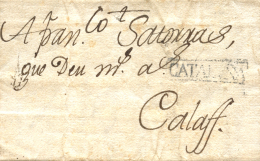 Apan. Cot Satorras,
que Deu m.s a.s
CATALUÑA
Calaff.